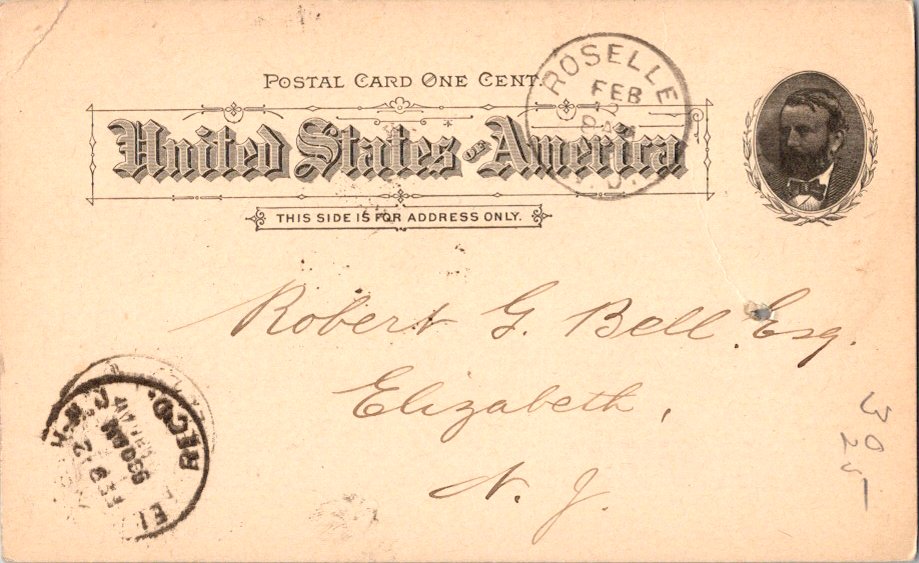 POSTAL CARD ONE CENT.
United States OF America
THIS SIDE IS FOR ADDRESS ONLY.
ROSELLE
FEB
Robert G. Bell Esq.
Elizabeth,
N. J.
REC'D.
FEB 12
630AM
30